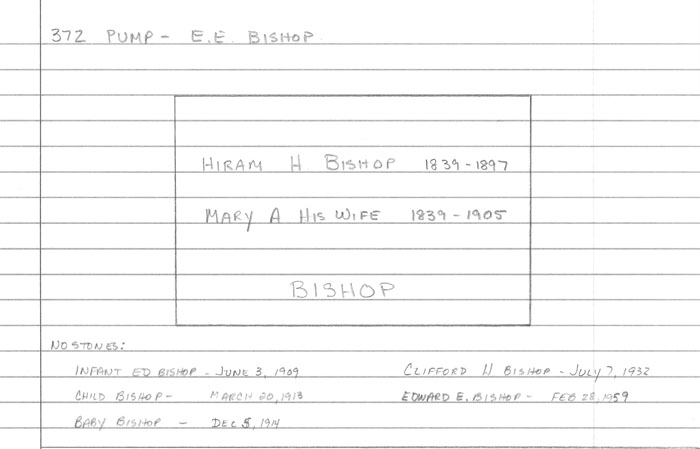 372 PUMP - E.E. BISHOP
HIRAM H BISHOP 1839-1897
MARY A HIS WIFE 1839-1905
BISHOP
NO STONES:
INFANT ED BISHOP - JUNE 3, 1909
CLIFFORD H BISHOP - JULY 7, 1932
CHILD BISHOP - MARCH 20, 1913
EDWARD E. BISHOP - FEB 28, 1959
BABY BISHOP - DEC 5, 1914